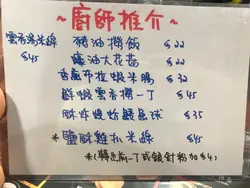 ~廚師推介~
雲吞湯米線 $45
豬油撈飯 $22
油大花 $22
香煎布拉蝦米腸 $32
鮮蝦雲吞撈一丁 $45
酥炸蜆蚧鯪魚球 $35
*鹽酥雞扒米線 $45
*(轉出前一丁或銀針粉加$4)